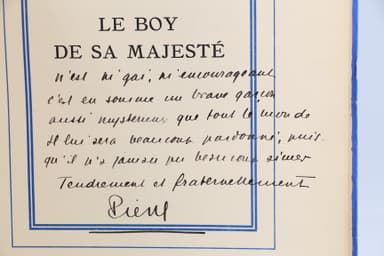 LE BOY
DE SA MAJESTÉ
n'est ni gai, ni encourageant
c'est en somme un brave garçon
aussi mystérieux que tout le monde
Il lui sera beaucoup pardonné, puis
qu'il n'a jamais pu beaucoup aimer
Tendrement et fraternellement
Pierre